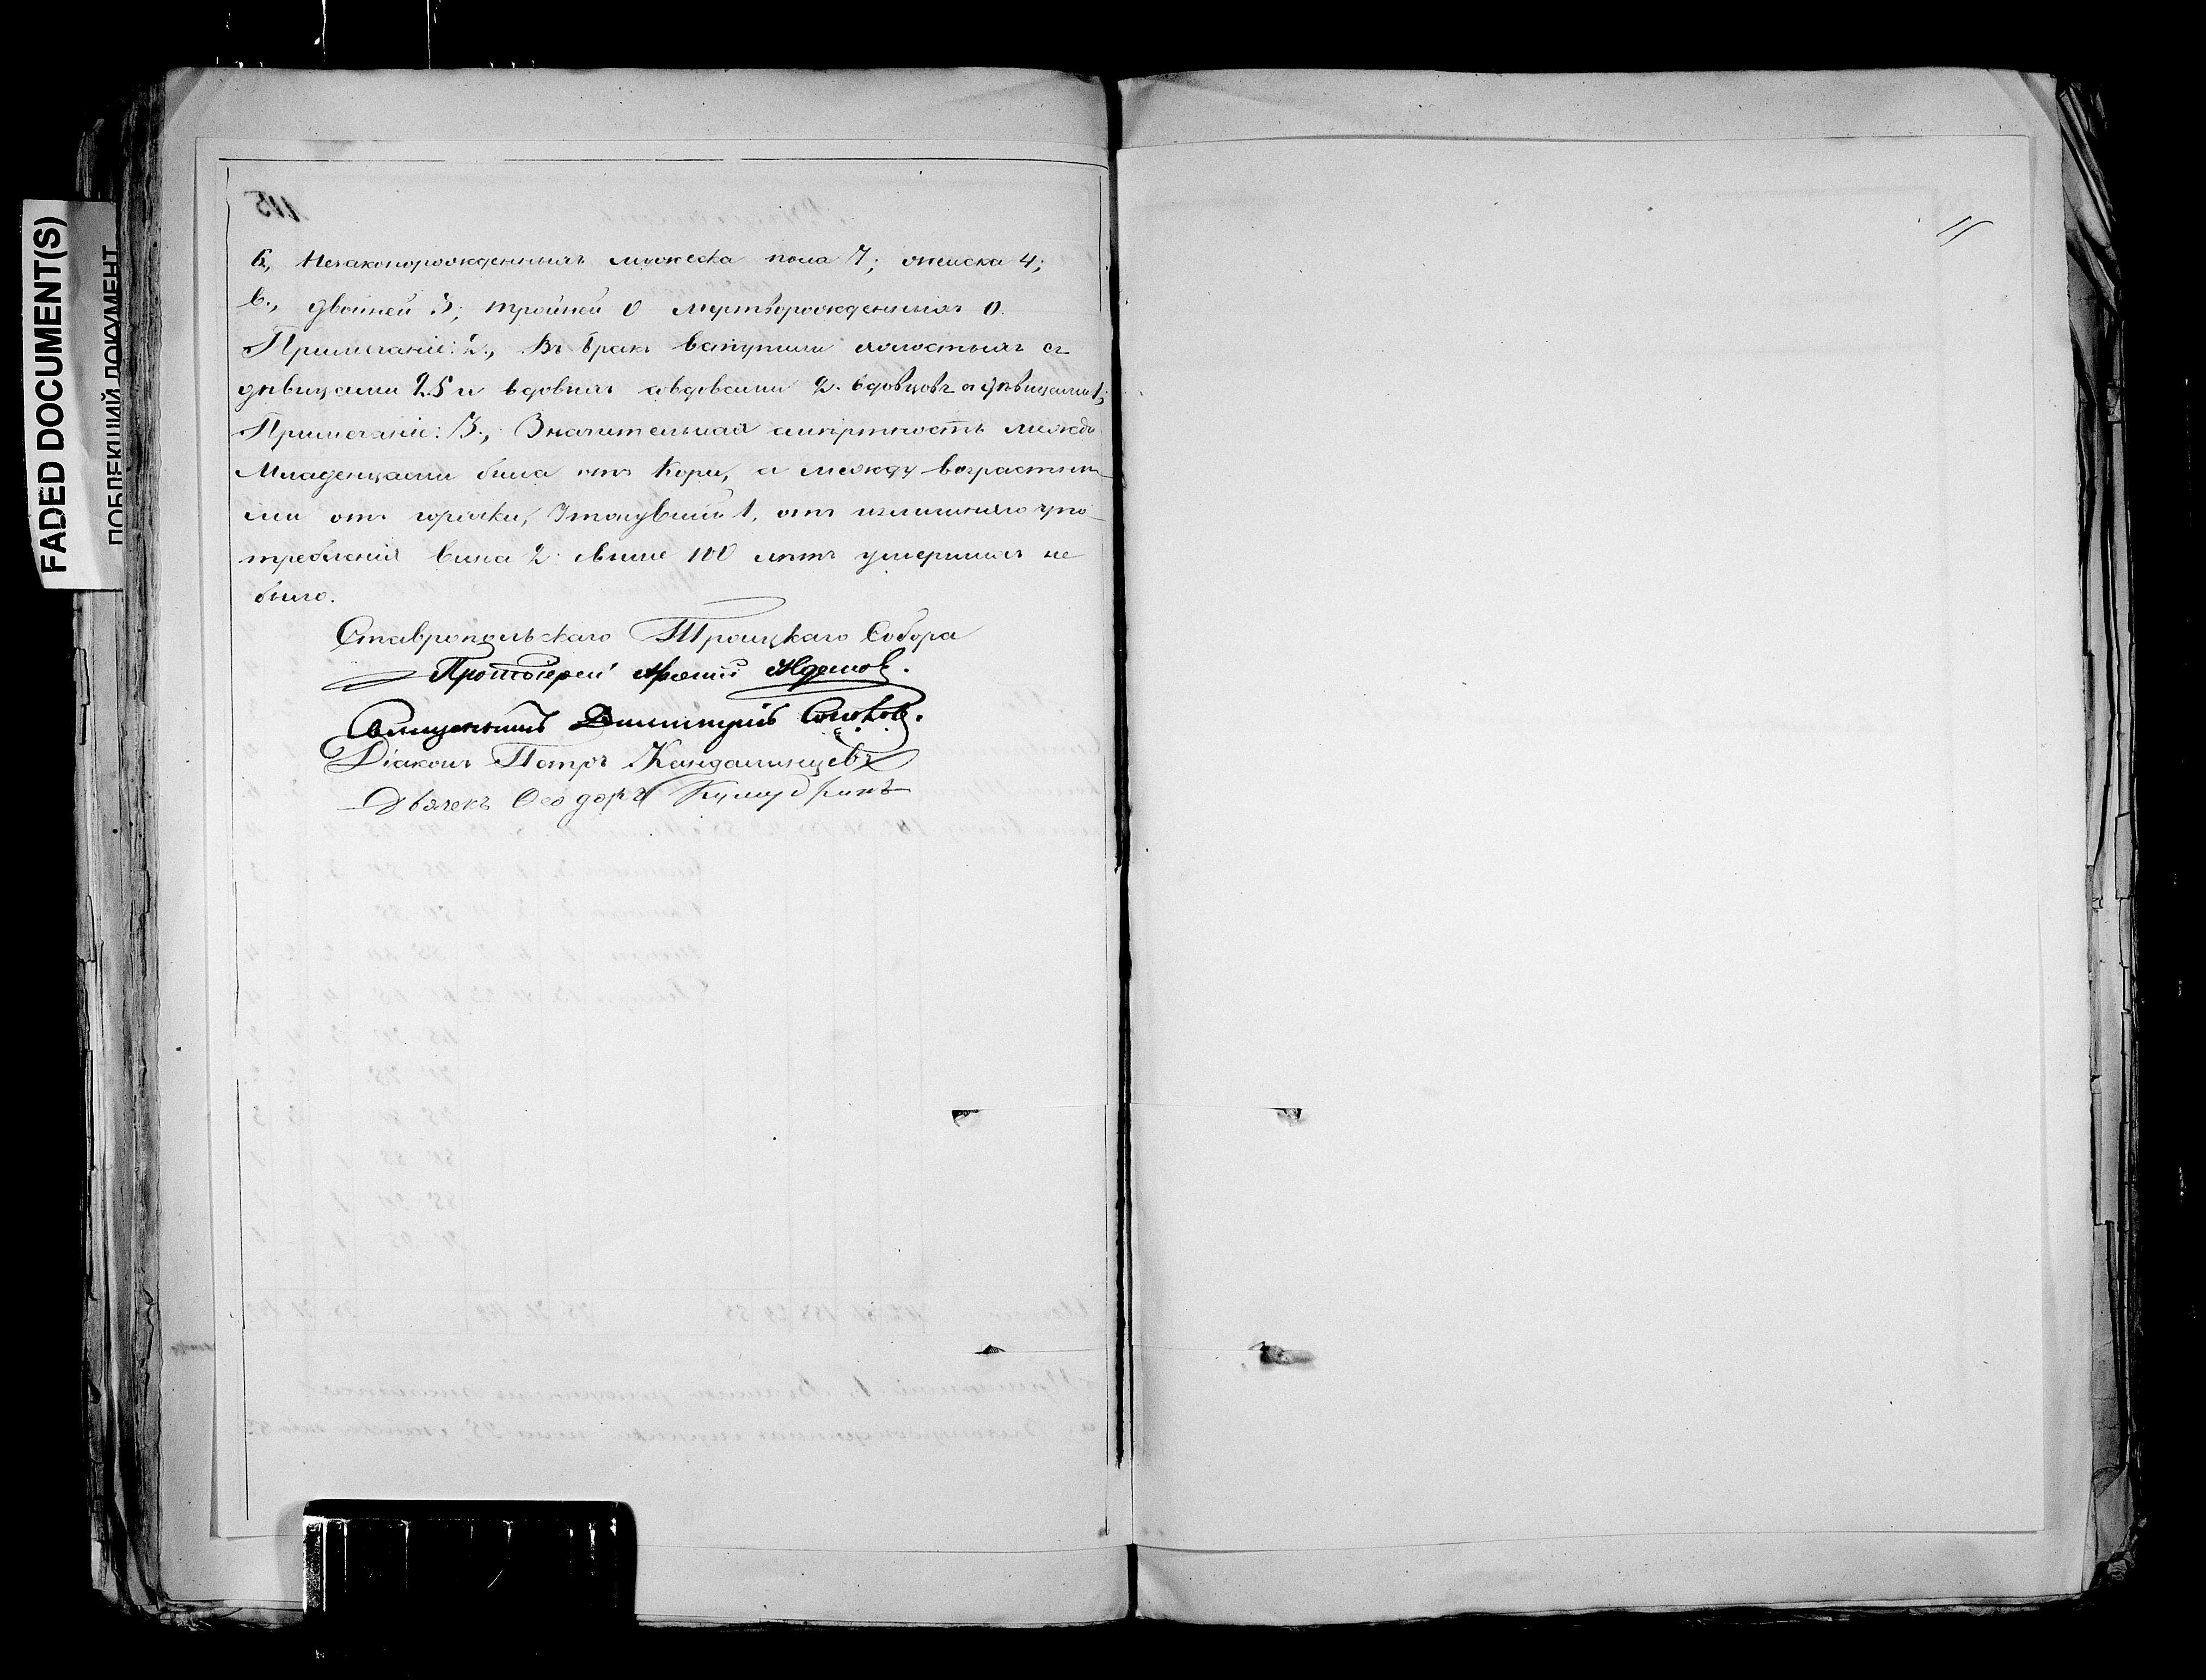 FADED DOCUMENT(S)
ПОБЛЕКШИЙ ДОКУМЕНТ
б, Незаконорожденныхъ мужеска пола 7; женска 4;
в., двойней 3; тройней 0 мертворожденныхъ 0.
Примечаніе: 2., Въ бракъ вступили холостыхъ съ
дѣвицами 25 и вдовыхъ со вдовами 2. вдовцовъ съ дѣвицами 1;
Примечаніе: 3., Значительная смертность между
Младенцами была отъ Кори, а между возрастны-
ми отъ горячки, Утонувший 1, отъ излишняго упо-
требленія вина 2. Выше 100 лѣтъ умершихъ не
было.
Ставропольскаго Троицкаго Собора
Протоіерей
Священникъ Димитрій
Діаконъ Петръ Кандалинцевъ
Дьячекъ Ѳеодоръ